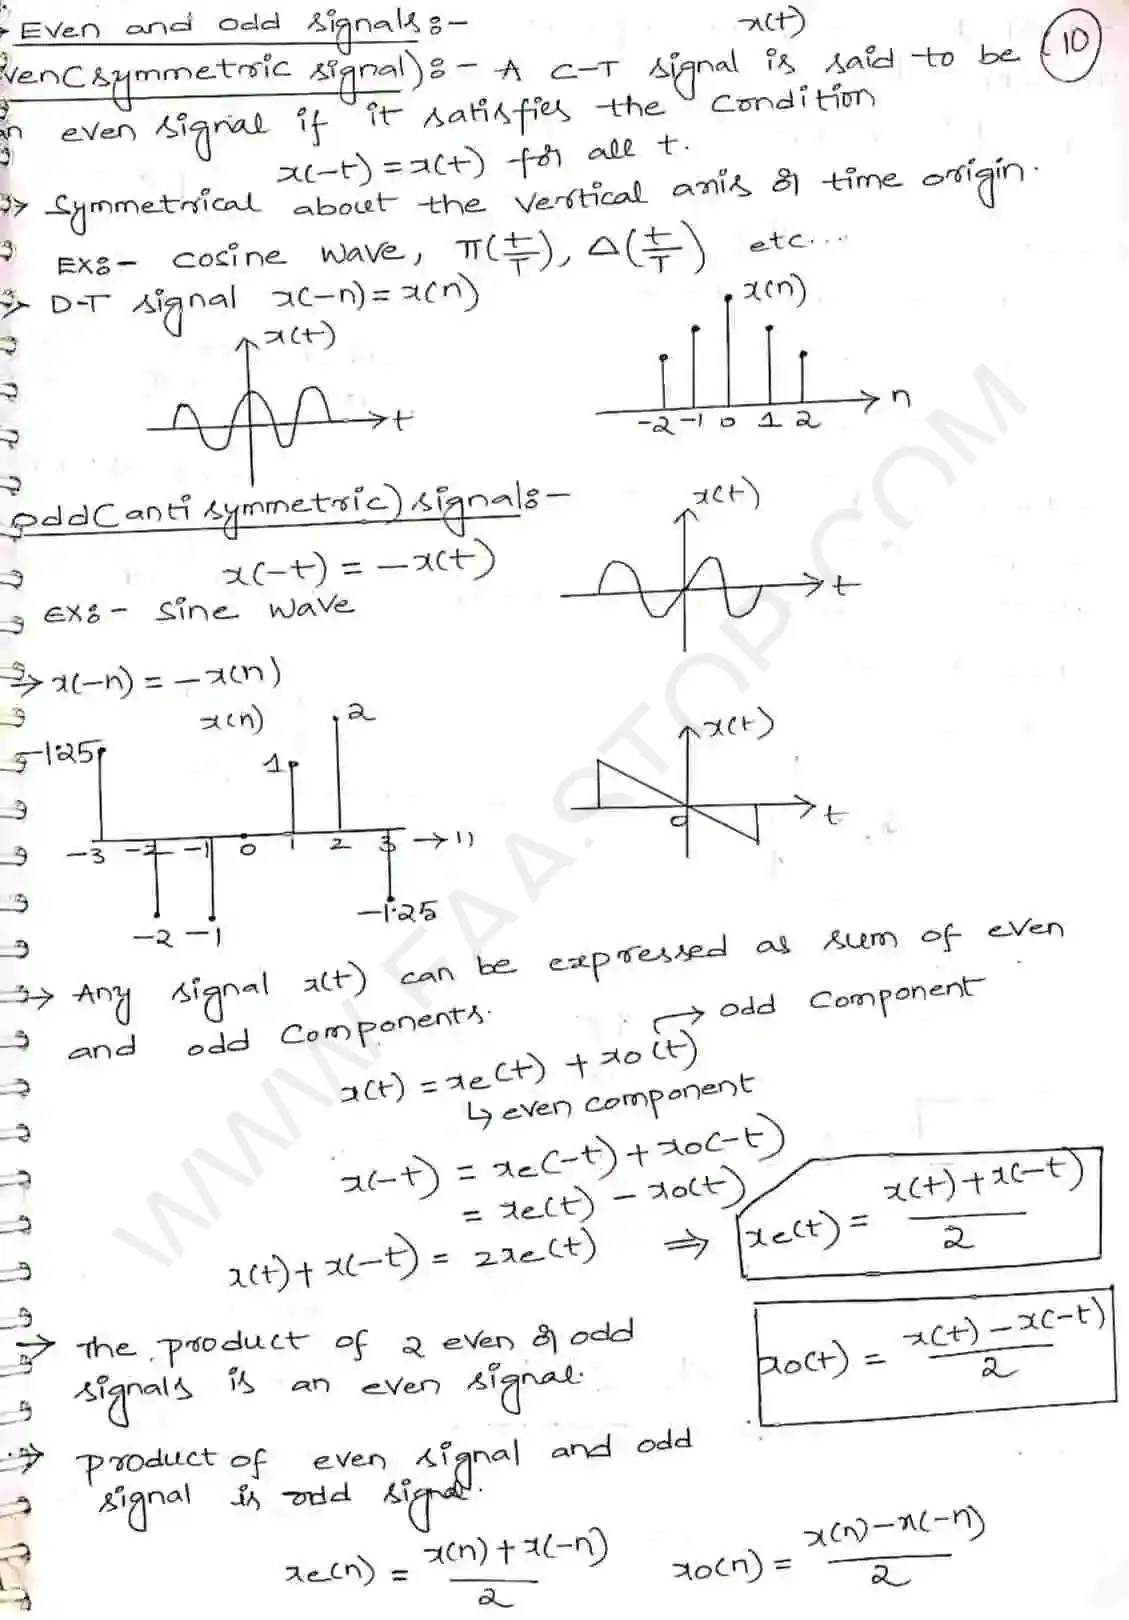 Even and odd signals:-
x(t)
10
ven(symmetric signal):- A C-T signal is said to be
an even signal if it satisfies the condition
x(-t) = x(t) for all t.
→ Symmetrical about the vertical axis or time origin.
Ex:- cosine wave, π(t/T), Δ(t/T) etc....
→ D-T signal x(-n) = x(n)
x(t)
t
x(n)
n
-2 -1 0 1 2
odd(anti symmetric) signal:-
x(-t) = -x(t)
Ex:- sine wave
x(t)
t
→ x(-n) = -x(n)
x(n)
-1.25
1
2
-3 -2 -1 0 1 2 3 → n
-2 -1
-1.25
x(t)
0
t
→ Any signal x(t) can be expressed as sum of even
and odd components.
→ odd component
x(t) = xe(t) + xo(t)
↳ even component
x(-t) = xe(-t) + xo(-t)
= xe(t) - xo(t)
x(t) + x(-t) = 2xe(t) ⇒ xe(t) = x(t) + x(-t) / 2
xo(t) = x(t) - x(-t) / 2
→ the product of 2 even or odd
signals is an even signal.
→ product of even signal and odd
signal is odd signal.
xe(n) = x(n) + x(-n) / 2
xo(n) = x(n) - x(-n) / 2
WWW.FAASTOP.COM